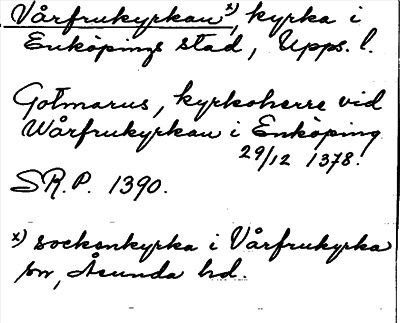 Vårfrukyrkan x), kyrka i
Enköpings stad, Upps. l.
Gotmarus, kyrkoherre vid
Wårfrukyrkan i Enköping
29/12 1378.
SR.P. 1390.
x) sockenkyrka i Vårfrukyrka
sn, Åsunda hd.